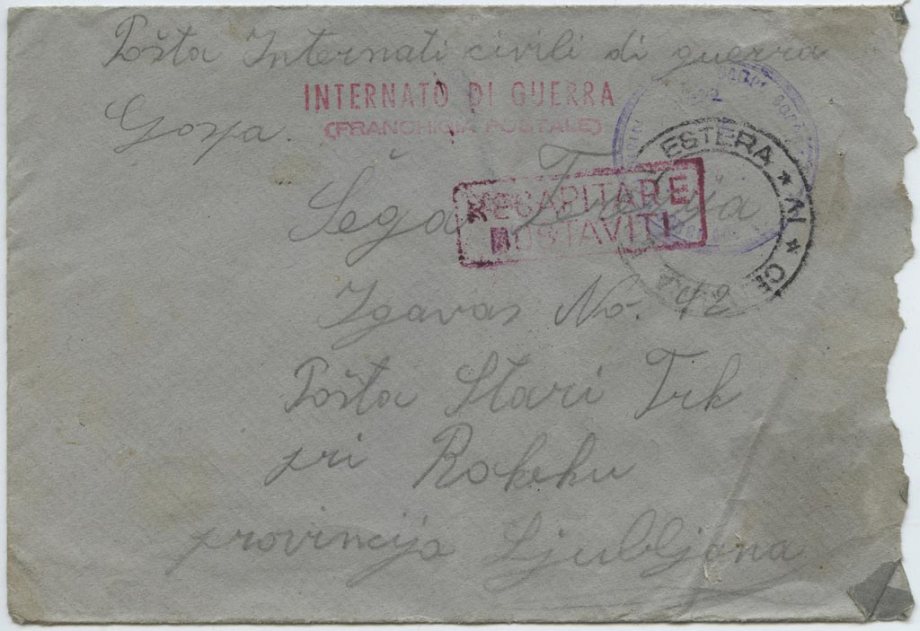 Pošta Internati civili di guerra
INTERNATO DI GUERRA
(FRANCHIGIA POSTALE)
Gospa.
Šega
ESTERA * IV *
RECAPITARE
DOSTAVITI
Igavas No. 42
Pošta Stari Trk
pri Rakeku
provincija Ljubljana